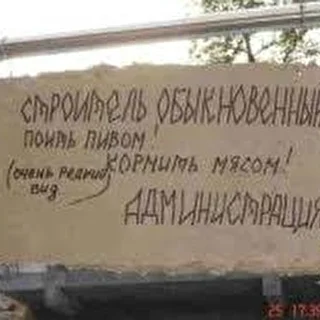 СТРОИТЕЛЬ ОБЫКНОВЕННЫЙ
ПОИТЬ ПИВОМ!
КОРМИТЬ МЯСОМ!
(ОЧЕНЬ РЕДКИЙ
ВИД
АДМИНИСТРАЦИЯ
25 17:39